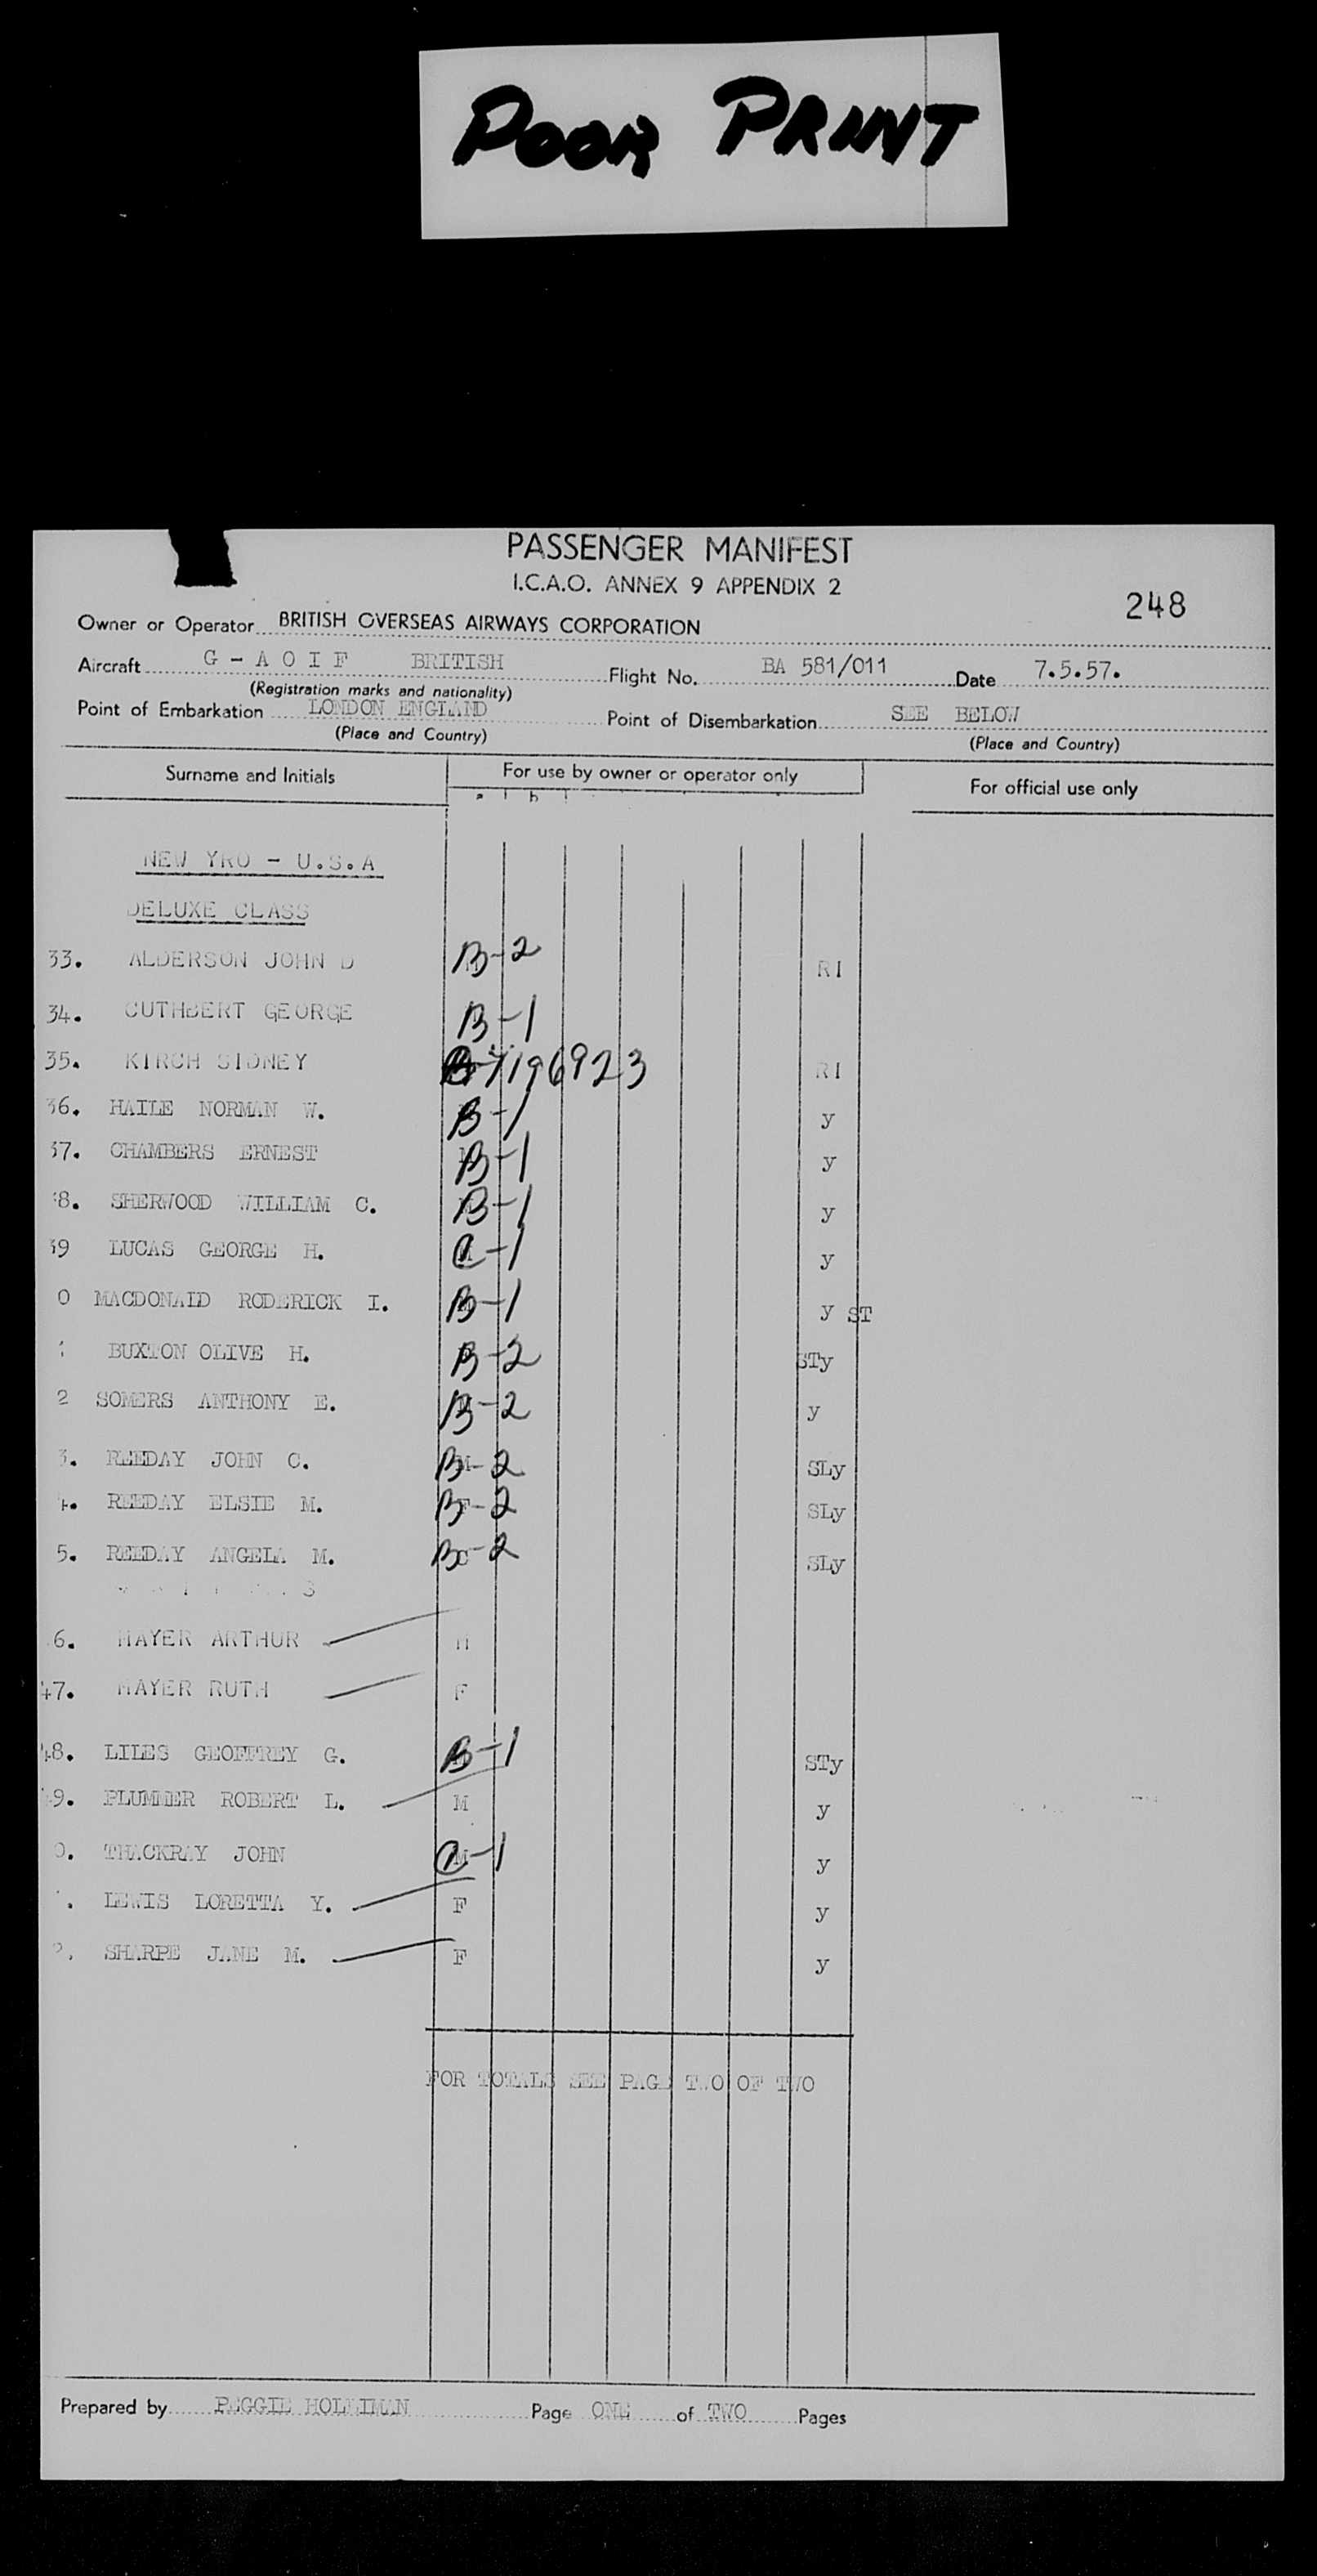 POOR PRINT
PASSENGER MANIFEST
I.C.A.O. ANNEX 9 APPENDIX 2
248
Owner or Operator BRITISH OVERSEAS AIRWAYS CORPORATION
Aircraft G - A O I F BRITISH Flight No. BA 581/011 Date 7.5.57.
(Registration marks and nationality)
Point of Embarkation LONDON ENGLAND Point of Disembarkation SEE BELOW
(Place and Country) (Place and Country)
Surname and Initials For use by owner or operator only For official use only
a b
NEW YRO - U.S.A
DELUXE CLASS
33. ALDERSON JOHN D B-2 RI
34. CUTHBERT GEORGE B-1
35. KIRCH SIDNEY 7196923 RI
36. HAILE NORMAN W. B-1 y
37. CHAMBERS ERNEST B-1 y
38. SHERWOOD WILLIAM C. B-1 y
39 LUCAS GEORGE H. C-1 y
0 MACDONALD RODERICK I. B-1 y ST
BUXTON OLIVE H. B-2 STy
2 SOMERS ANTHONY E. B-2 y
3. REEDAY JOHN C. B-2 M SLy
4. REEDAY ELSIE M. B-2 F SLy
5. REEDAY ANGELA M. B-2 C SLy
6. MAYER ARTHUR M
47. MAYER RUTH F
48. LILES GEOFFREY G. B-1 STy
49. PLUMMER ROBERT L. M y
0. THACKRAY JOHN C-1 M y
. LEWIS LORETTA Y. F y
2. SHARPE JANE M. F y
FOR TOTALS SEE PAGE TWO OF TWO
Prepared by PEGGIE HOLLIMAN Page ONE of TWO Pages